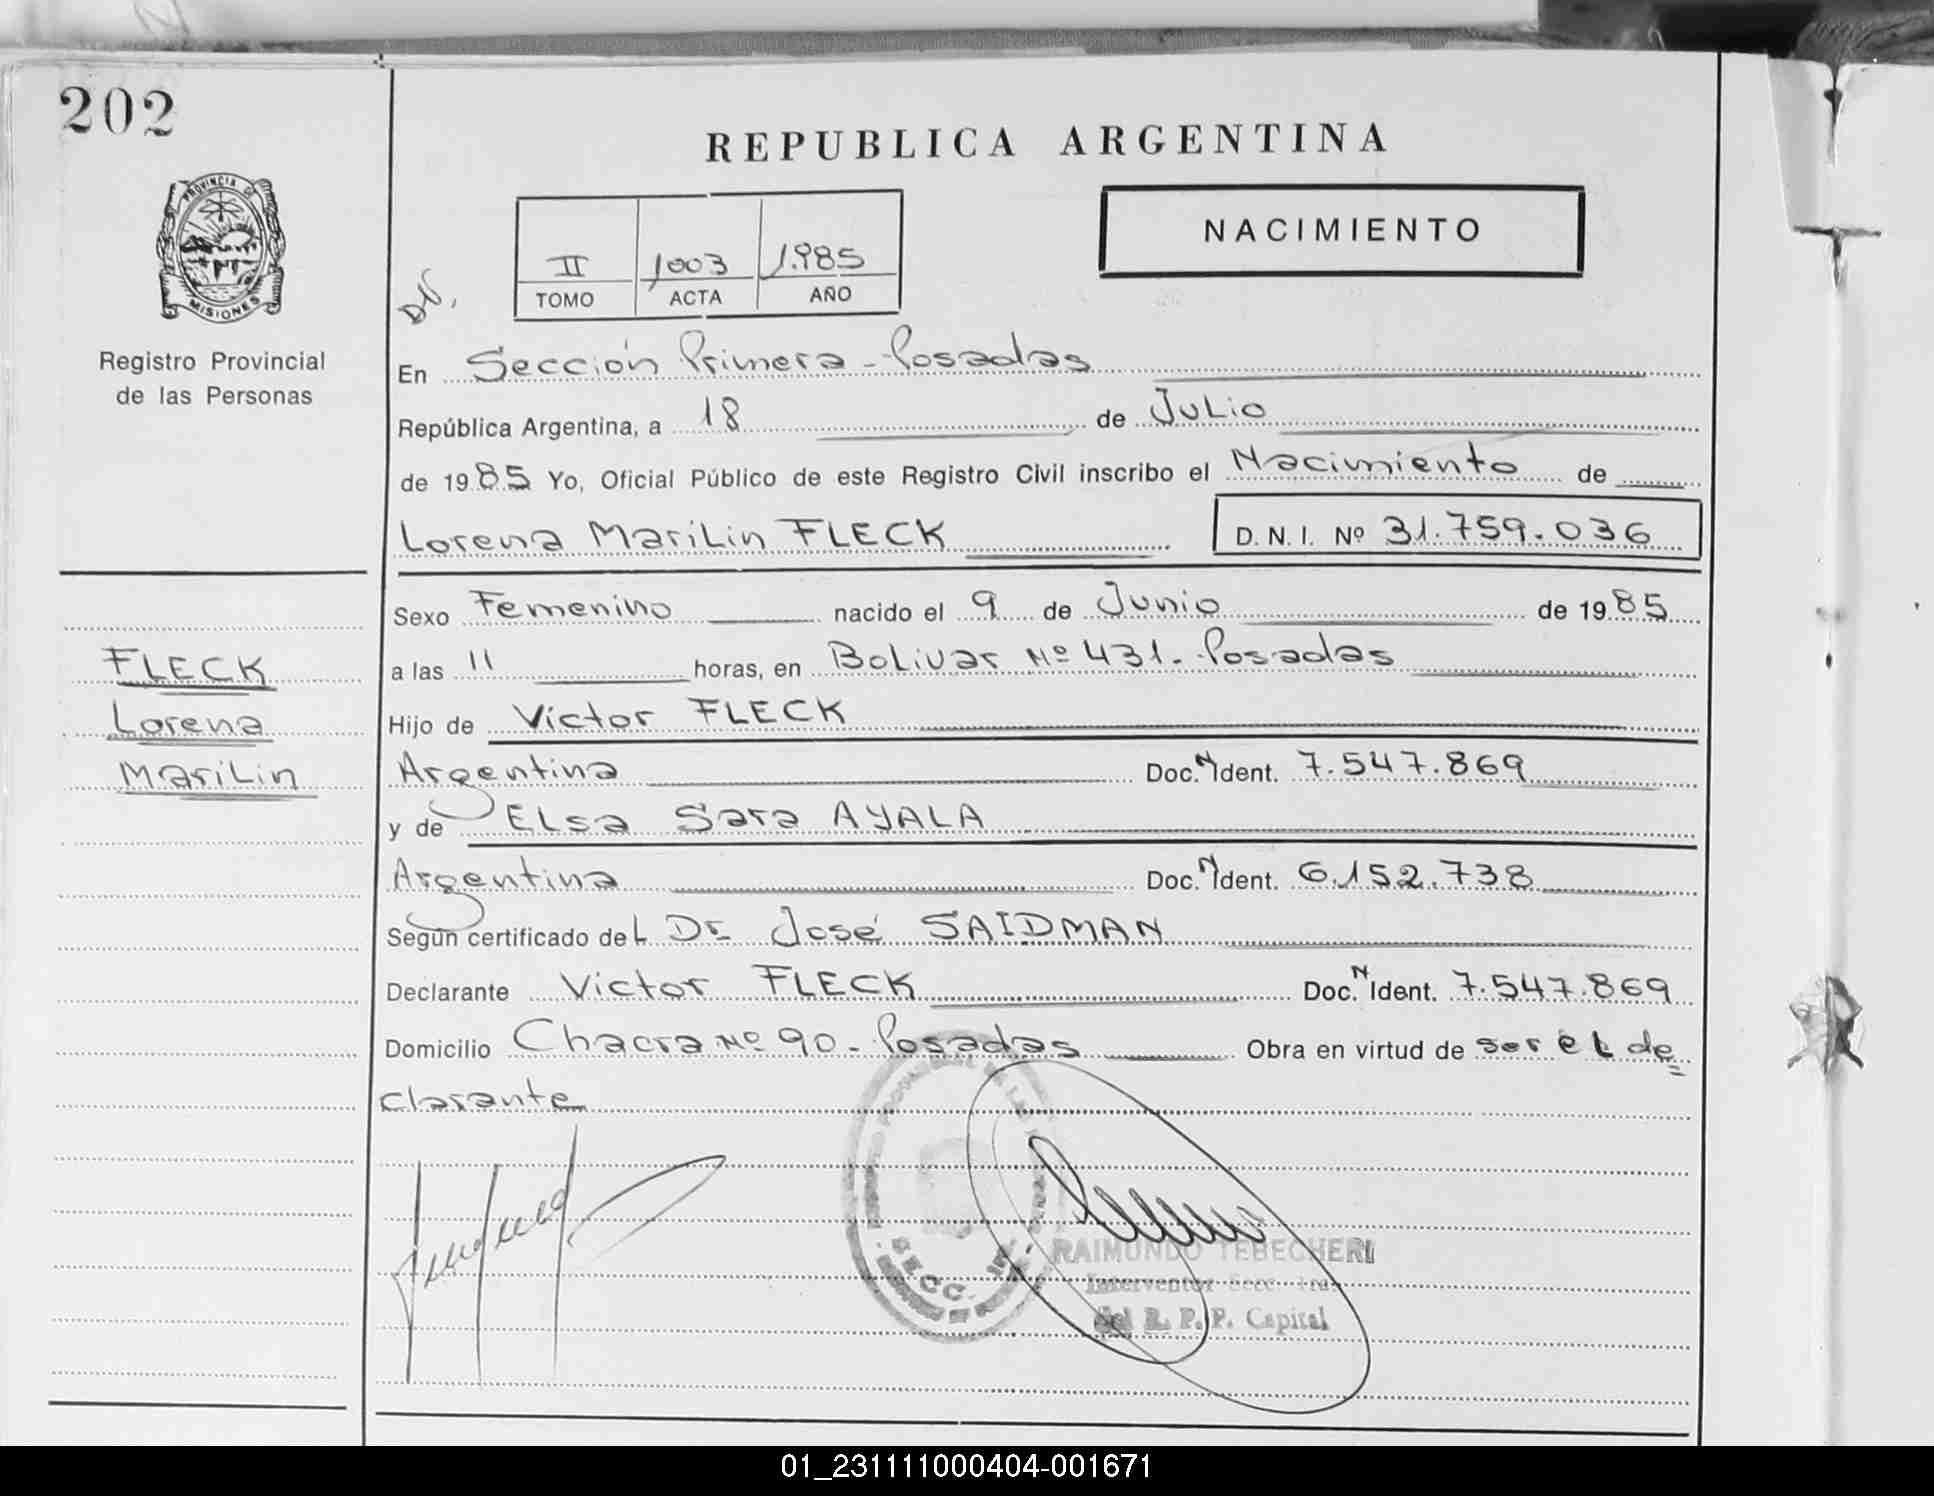 202
REPUBLICA ARGENTINA
PROVINCIA DE
MISIONES
Registro Provincial
de las Personas
II 1003 1.985
TOMO ACTA AÑO
NACIMIENTO
En Sección Primera - Posadas
República Argentina, a 18 de Julio
de 1985 Yo, Oficial Público de este Registro Civil inscribo el Nacimiento de
Lorena Marilin FLECK D. N. I. Nº 31.759.036
Sexo Femenino nacido el 9 de Junio de 1985
FLECK
a las 11 horas, en Bolivar Nº 431. Posadas
Lorena
Hijo de Victor FLECK
Marilin
Argentina Doc. N Ident. 7.547.869
y de Elsa Sara AYALA
Argentina Doc. N Ident. 6.152.738
Según certificado del Dr José SAIDMAN
Declarante Victor FLECK Doc. N Ident. 7.547.869
Domicilio Chacra Nº 90 - Posadas Obra en virtud de ser el de=
clarante
SECC.
RAIMUNDO TEBECHERI
Interventor Secc. 1ra.
del R. P. P. Capital
01_231111000404-001671